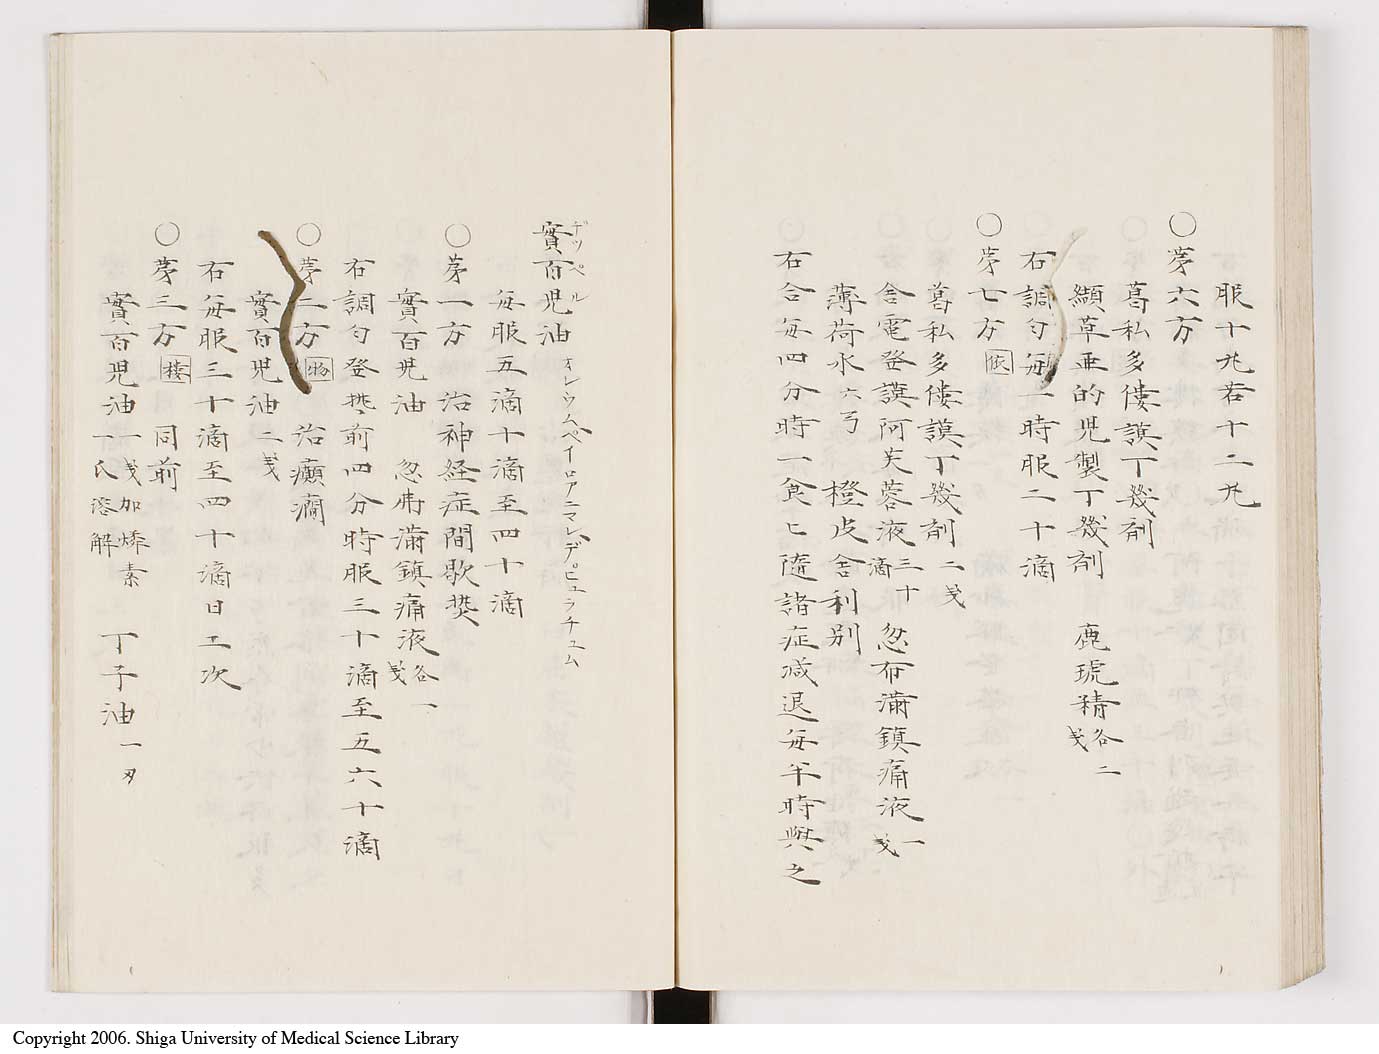 服十丸若十二丸
○第六方
葛私多僂謨丁幾剤
纈草亜的児製丁幾剤 鹿琥精各二戔
右調匀毎一時服二十滴
○第七方 依
葛私多僂謨丁幾剤二戔
舎電登謨阿芙蓉液三十滴 忽布満鎮痛液一戔
薄荷水六弓 橙皮舎利別
右合毎四分時一食匕随諸症減退毎半時與之
實百児油 デッペル オレウムペイロアニマレデピュラチュム
毎服五滴十滴至四十滴
○第一方 治神経症間歇熱
實百児油 忽布満鎮痛液各一戔
右調匀登熱前四分時服三十滴至五六十滴
○第二方 治癲癇
實百児油二戔
右毎服三十滴至四十滴日二次
○第三方 楼 同前
實百児油一戔加燐素一氏溶解 丁子油一刄
Copyright 2006. Shiga University of Medical Science Library